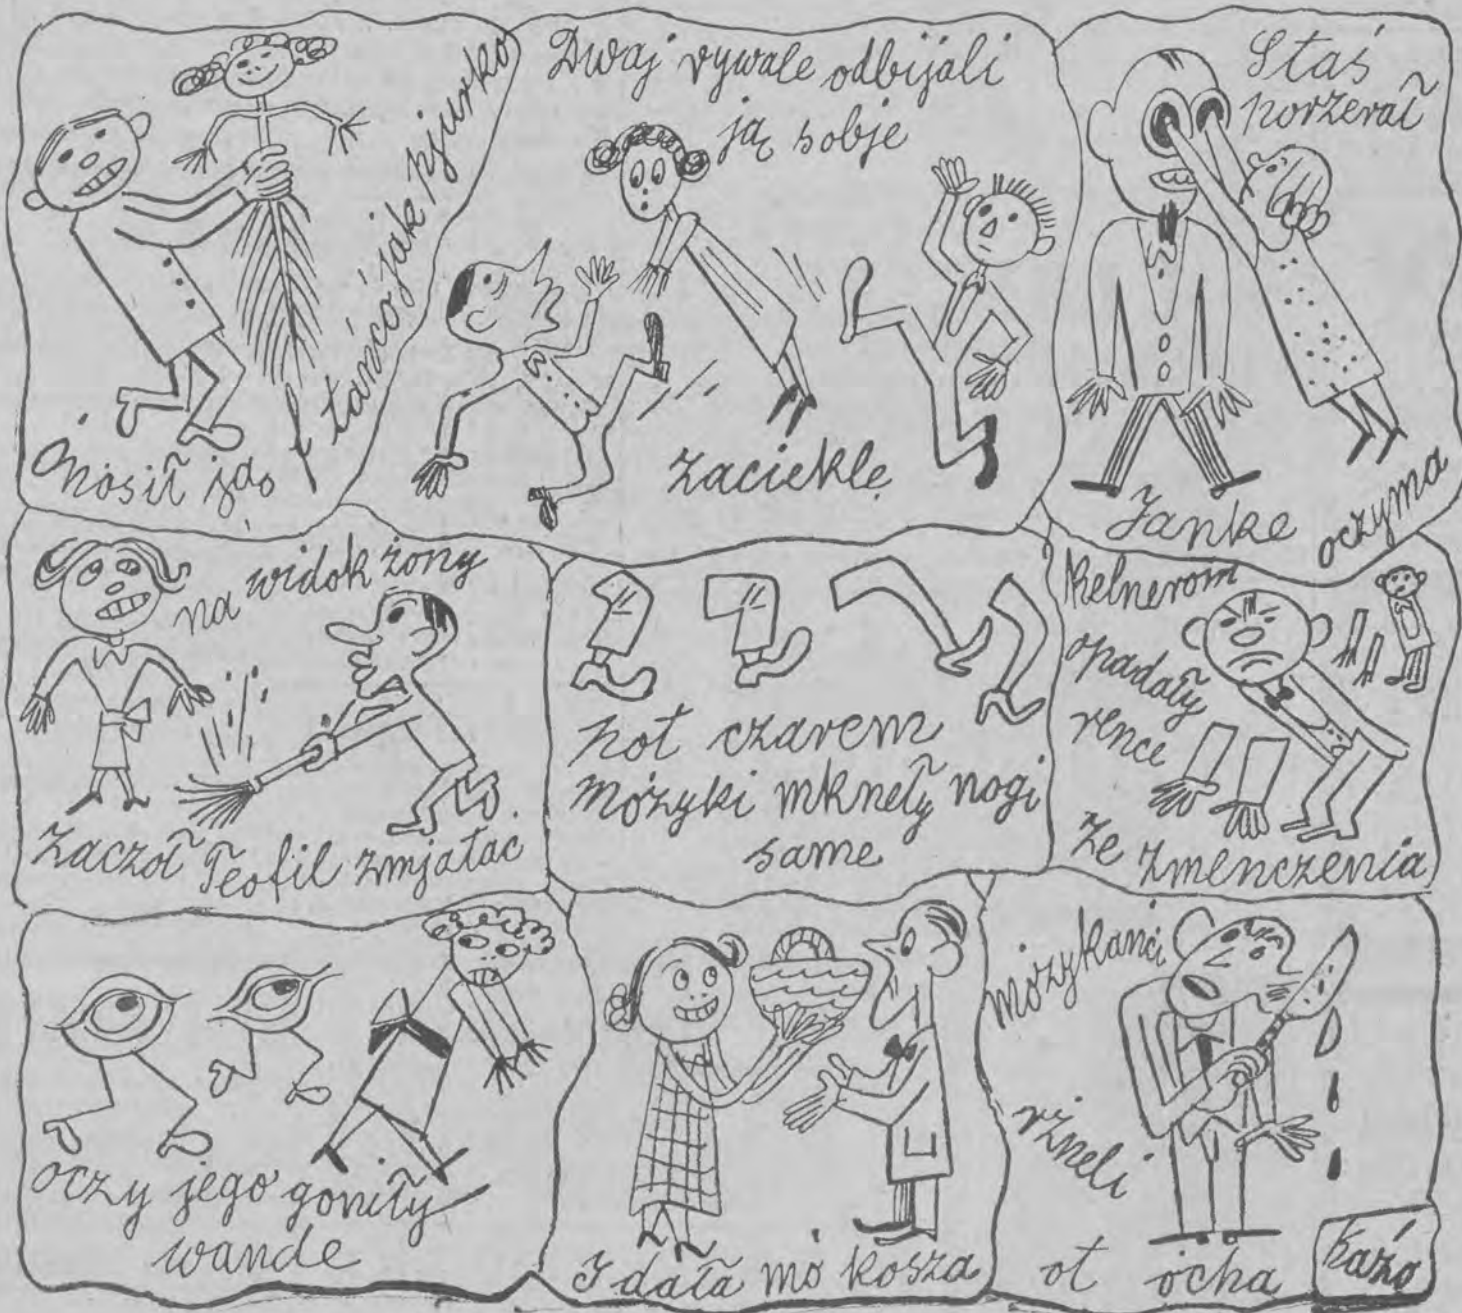 Nosił ją
w tańcó jak pjurko
Dwaj rywale odbijali
ją sobje
zaciekle
Staś
porzerał
Janke
oczyma
na widok żony
Zaczoł Teofil zmjatac
pot czarem
mózyki mkneły nogi
same
Kelnerom
opadały
rence
ze zmenczenia
oczy jego goniły
wande
I dała mó kosza
mózykanci
rżneli
ot ócha